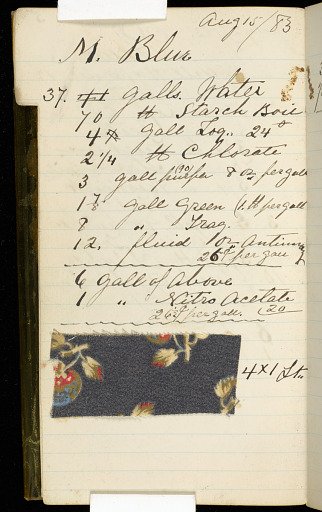 Aug 15/83
M. Blue
37. 41 galls. Water
70 ℔ Starch Boil
4 gall Log.. 24°
2 1/4 ℔ Chlorate
3 gall 8 oz per gall
18 gall Green (1 ℔ per gall
8 " Trag.
12. fluid 10 oz Antimony
26° per gall
6 gall of Above
1 " Nitro Acetate
26° per gall. (20
4 x 1 St.